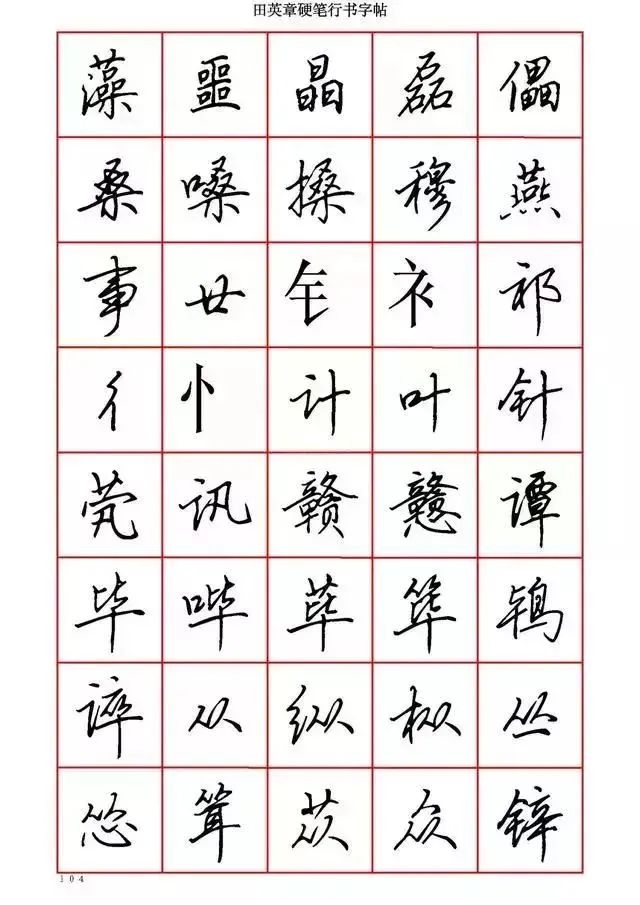 田英章硬笔行书字帖
藻 噩 晶 磊 儡
桑 嗓 搡 穆 燕
事 廿 衤 祁
彳 忄 计 叶 针
茕 讯 赣 戆 谭
毕 哔 荜 筚
谇 从 纵 枞 丛
怂 耸 苁 众 锌
104